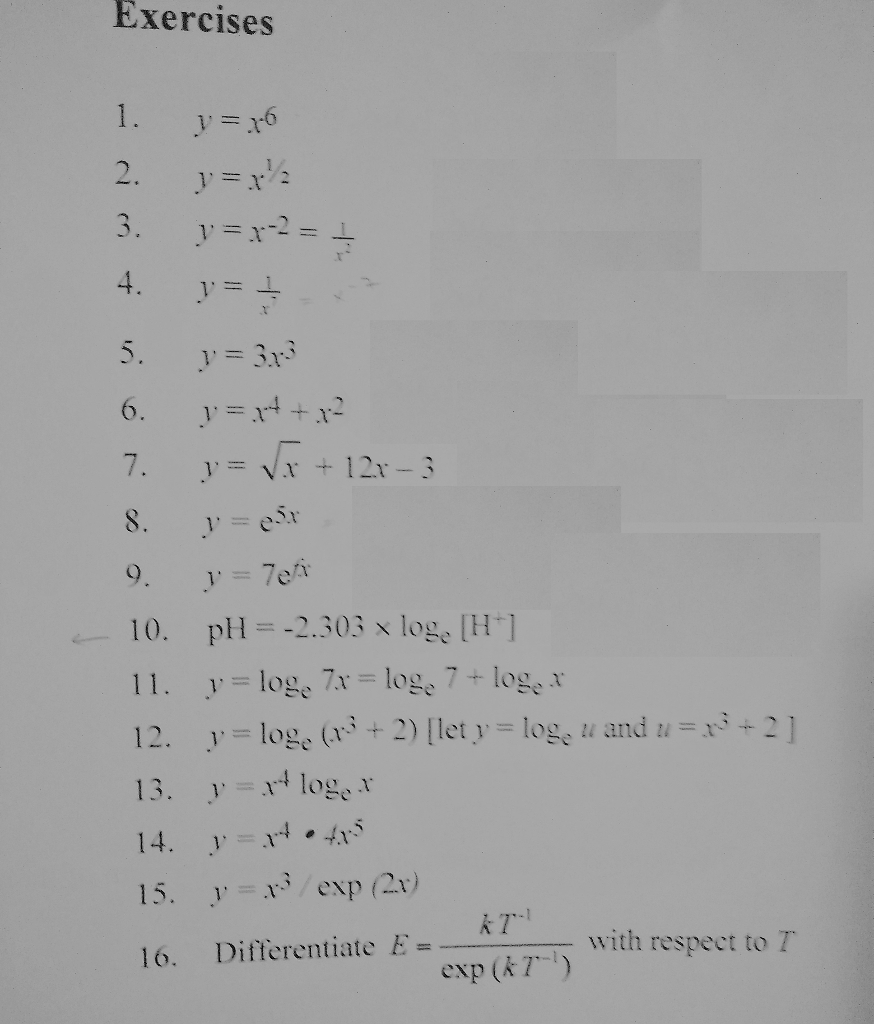 Exercises
1. y = x⁶
2. y = x^½
3. y = x⁻² = 1/x²
4. y = 1/x⁷ = x⁻⁷
5. y = 3x³
6. y = x⁴ + x²
7. y = √x + 12x – 3
8. y = e⁵ˣ
9. y = 7e
10. pH = -2.303 × logₑ [H⁺]
11. y = logₑ 7x = logₑ 7 + logₑ x
12. y = logₑ (x³ + 2) [let y = logₑ u and u = x³ + 2 ]
13. y = x⁴ logₑ x
14. y = x⁴ • 4x⁵
15. y = x³ / exp (2x)
16. Differentiate E = kT⁻¹ / exp (kT⁻¹) with respect to T